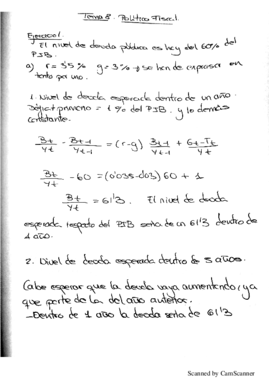 Tema 5. Política Fiscal.
Ejercicio 1.
El nivel de deuda pública es hoy del 60% del
PIB.
a) r = 3'5% g = 3% → se han de expresar en
tanto por uno.
1. Nivel de deuda esperada dentro de un año.
Déficit primario = 1% del PIB. y lo demás
constante.
Bt/Yt - Bt-1/Yt-1 = (r-g) Bt-1/Yt-1 + Gt-Tt/Yt
Bt/Yt - 60 = (0'035-0'03) 60 + 1
Bt/Yt = 61'3. El nivel de deuda
esperada respecto del PIB sería de un 61'3 dentro de
1 año.
2. Nivel de deuda esperada dentro de 5 años.
Cabe esperar que la deuda vaya aumentando, ya
que parte de la del año anterior.
- Dentro de 1 año la deuda sería de 61'3
Scanned by CamScanner